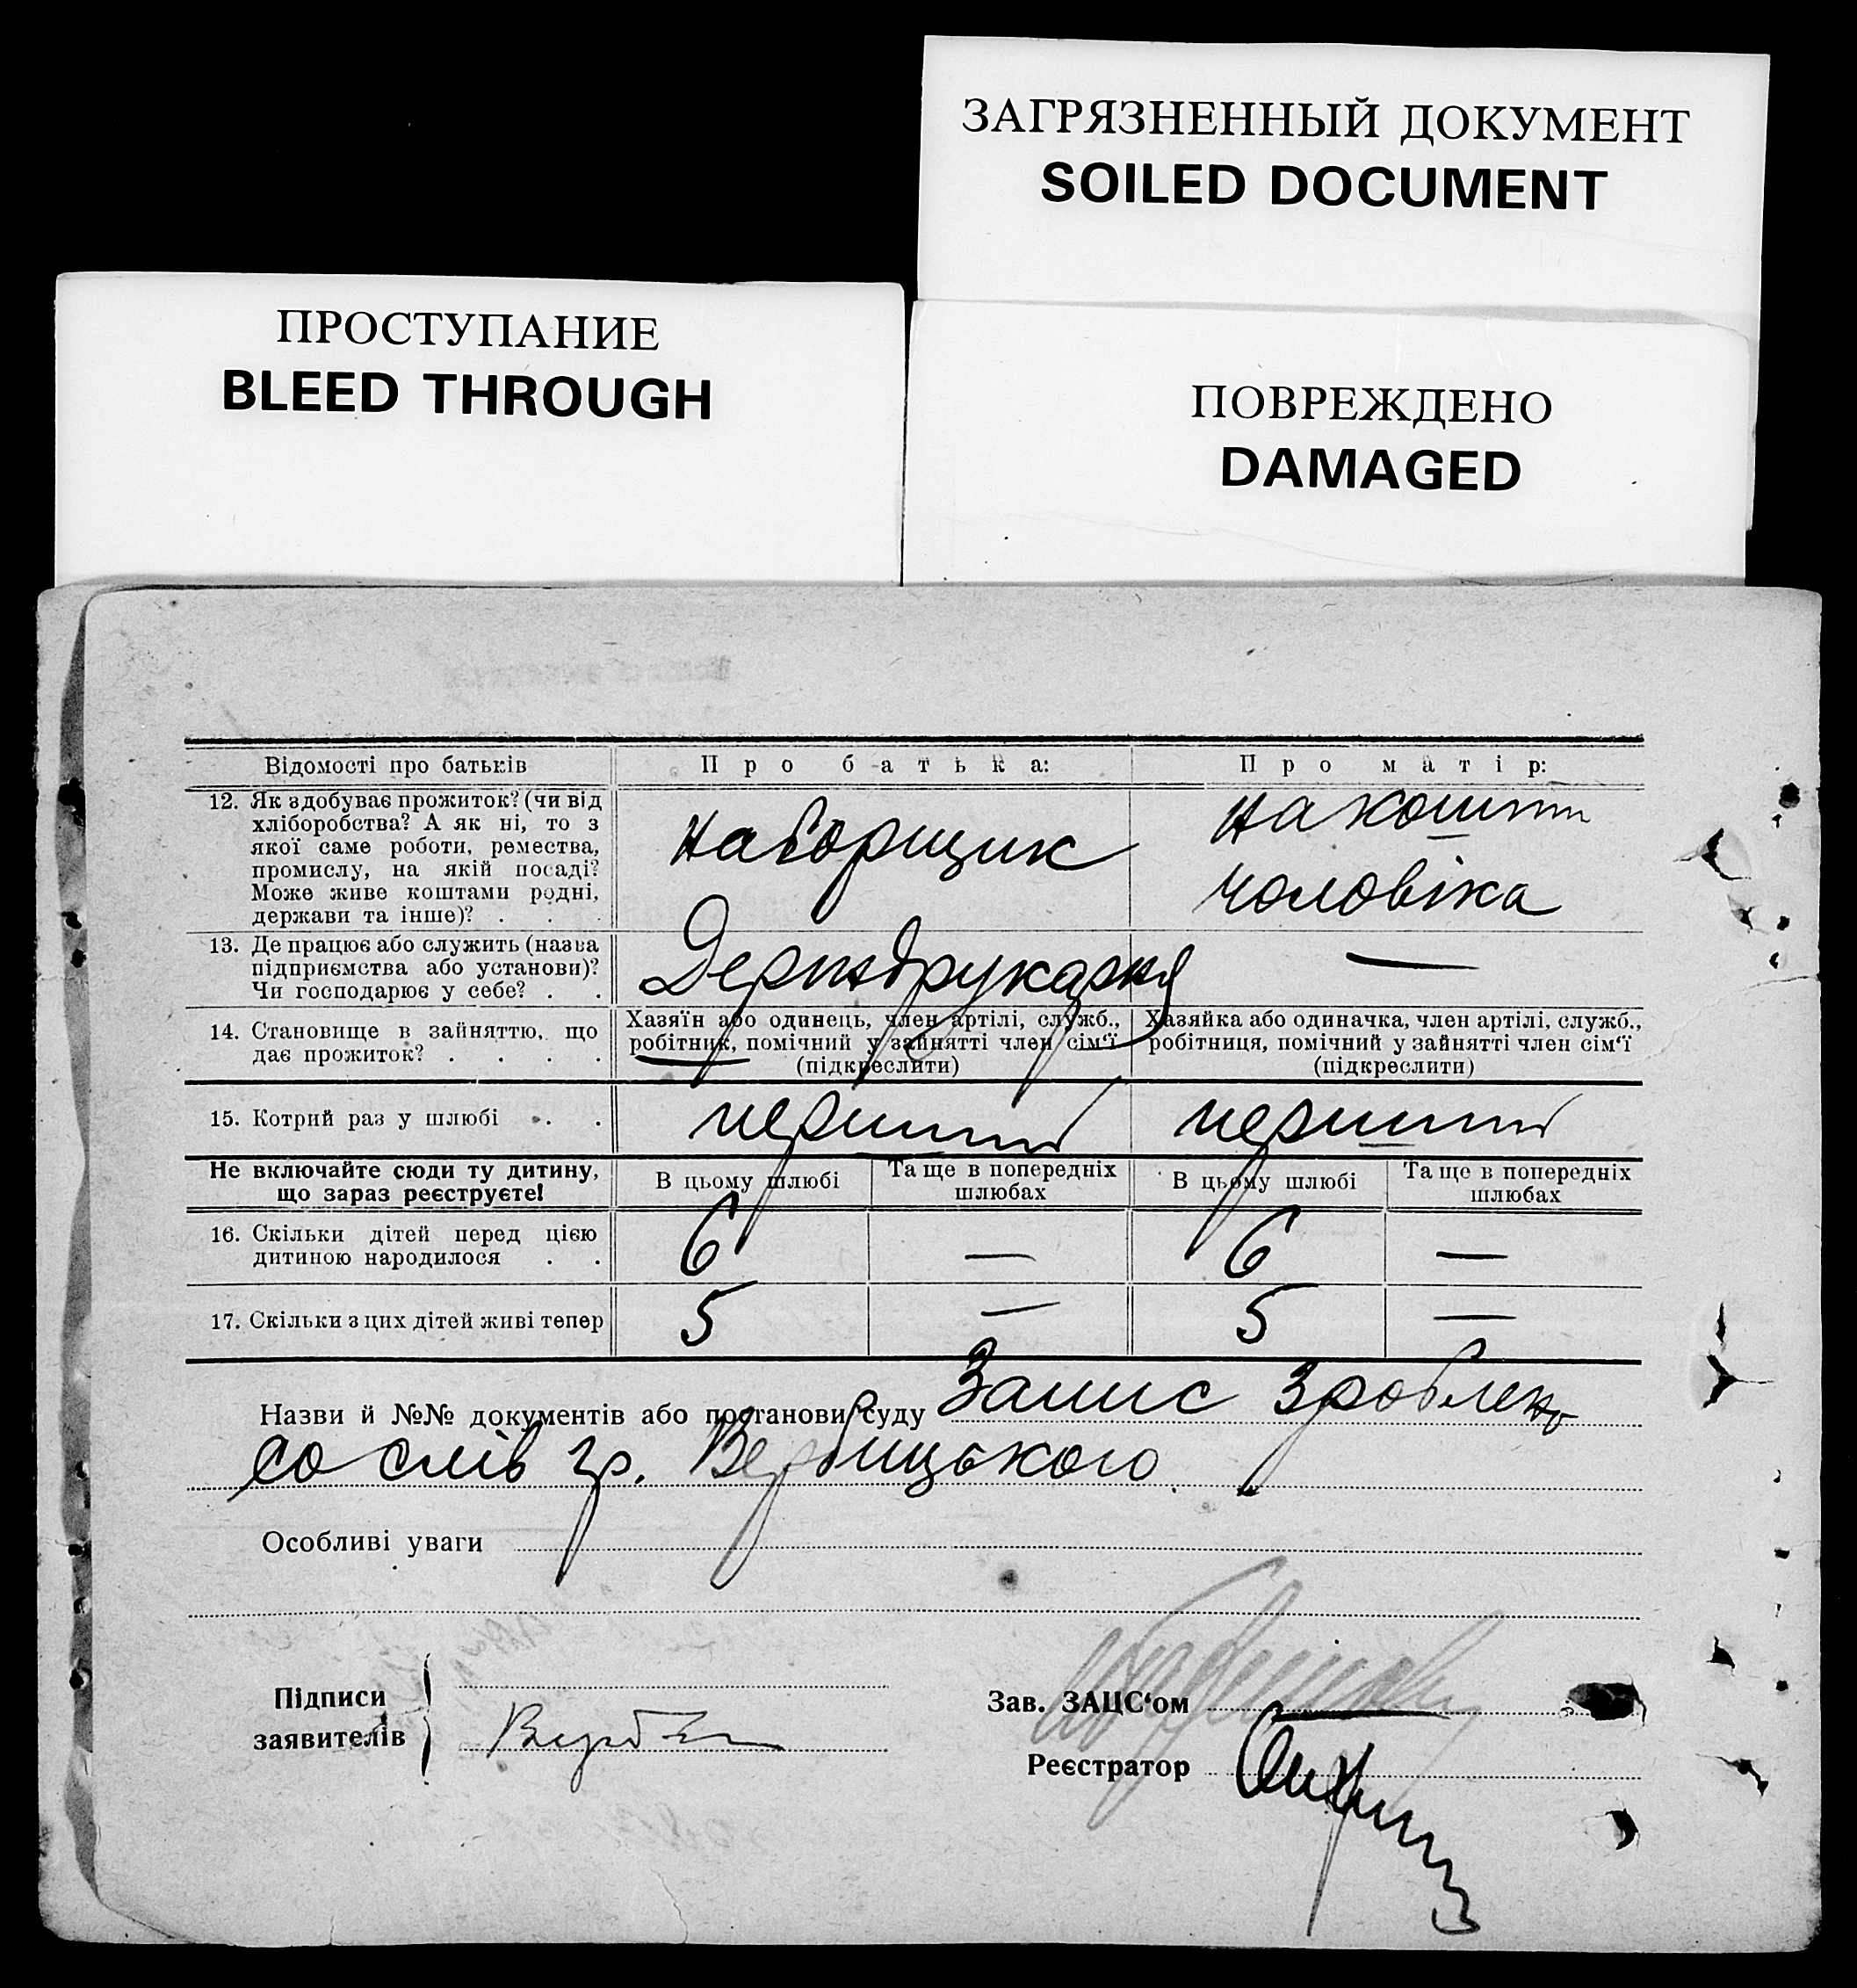 ЗАГРЯЗНЕННЫЙ ДОКУМЕНТ
SOILED DOCUMENT
ПРОСТУПАНИЕ
BLEED THROUGH
ПОВРЕЖДЕНО
DAMAGED
Відомості про батьків
Про батька:
Про матір:
12. Як здобуває прожиток? (чи від
хліборобства? А як ні, то з
якої саме роботи, ремества,
промислу, на якій посаді?
Може живе коштами родні,
держави та інше)? . . .
наборщик
на кошти
чоловіка
13. Де працює або служить (назва
підприємства або установи)?
Чи господарює у себе? . .
Держдрукарня
—
14. Становище в зайняттю, що
дає прожиток? . . . .
Хазяїн або одинець, член артілі, служб.,
робітник, помічний у зайнятті член сім‘ї
(підкреслити)
Хазяйка або одиначка, член артілі, служб.,
робітниця, помічний у зайнятті член сім‘ї
(підкреслити)
15. Котрий раз у шлюбі . . .
перший
перший
Не включайте сюди ту дитину,
що зараз реєструєте!
В цьому шлюбі
Та ще в попередніх
шлюбах
В цьому шлюбі
Та ще в попередніх
шлюбах
16. Скільки дітей перед цією
дитиною народилося . .
6 — 6 —
17. Скільки з цих дітей живі тепер
5 — 5 —
Назви й №№ документів або постанови суду Запис зроблено
со слів гр. Вербицького
Особливі уваги
Підписи
заявителів
Зав. ЗАЦС‘ом
Реєстратор